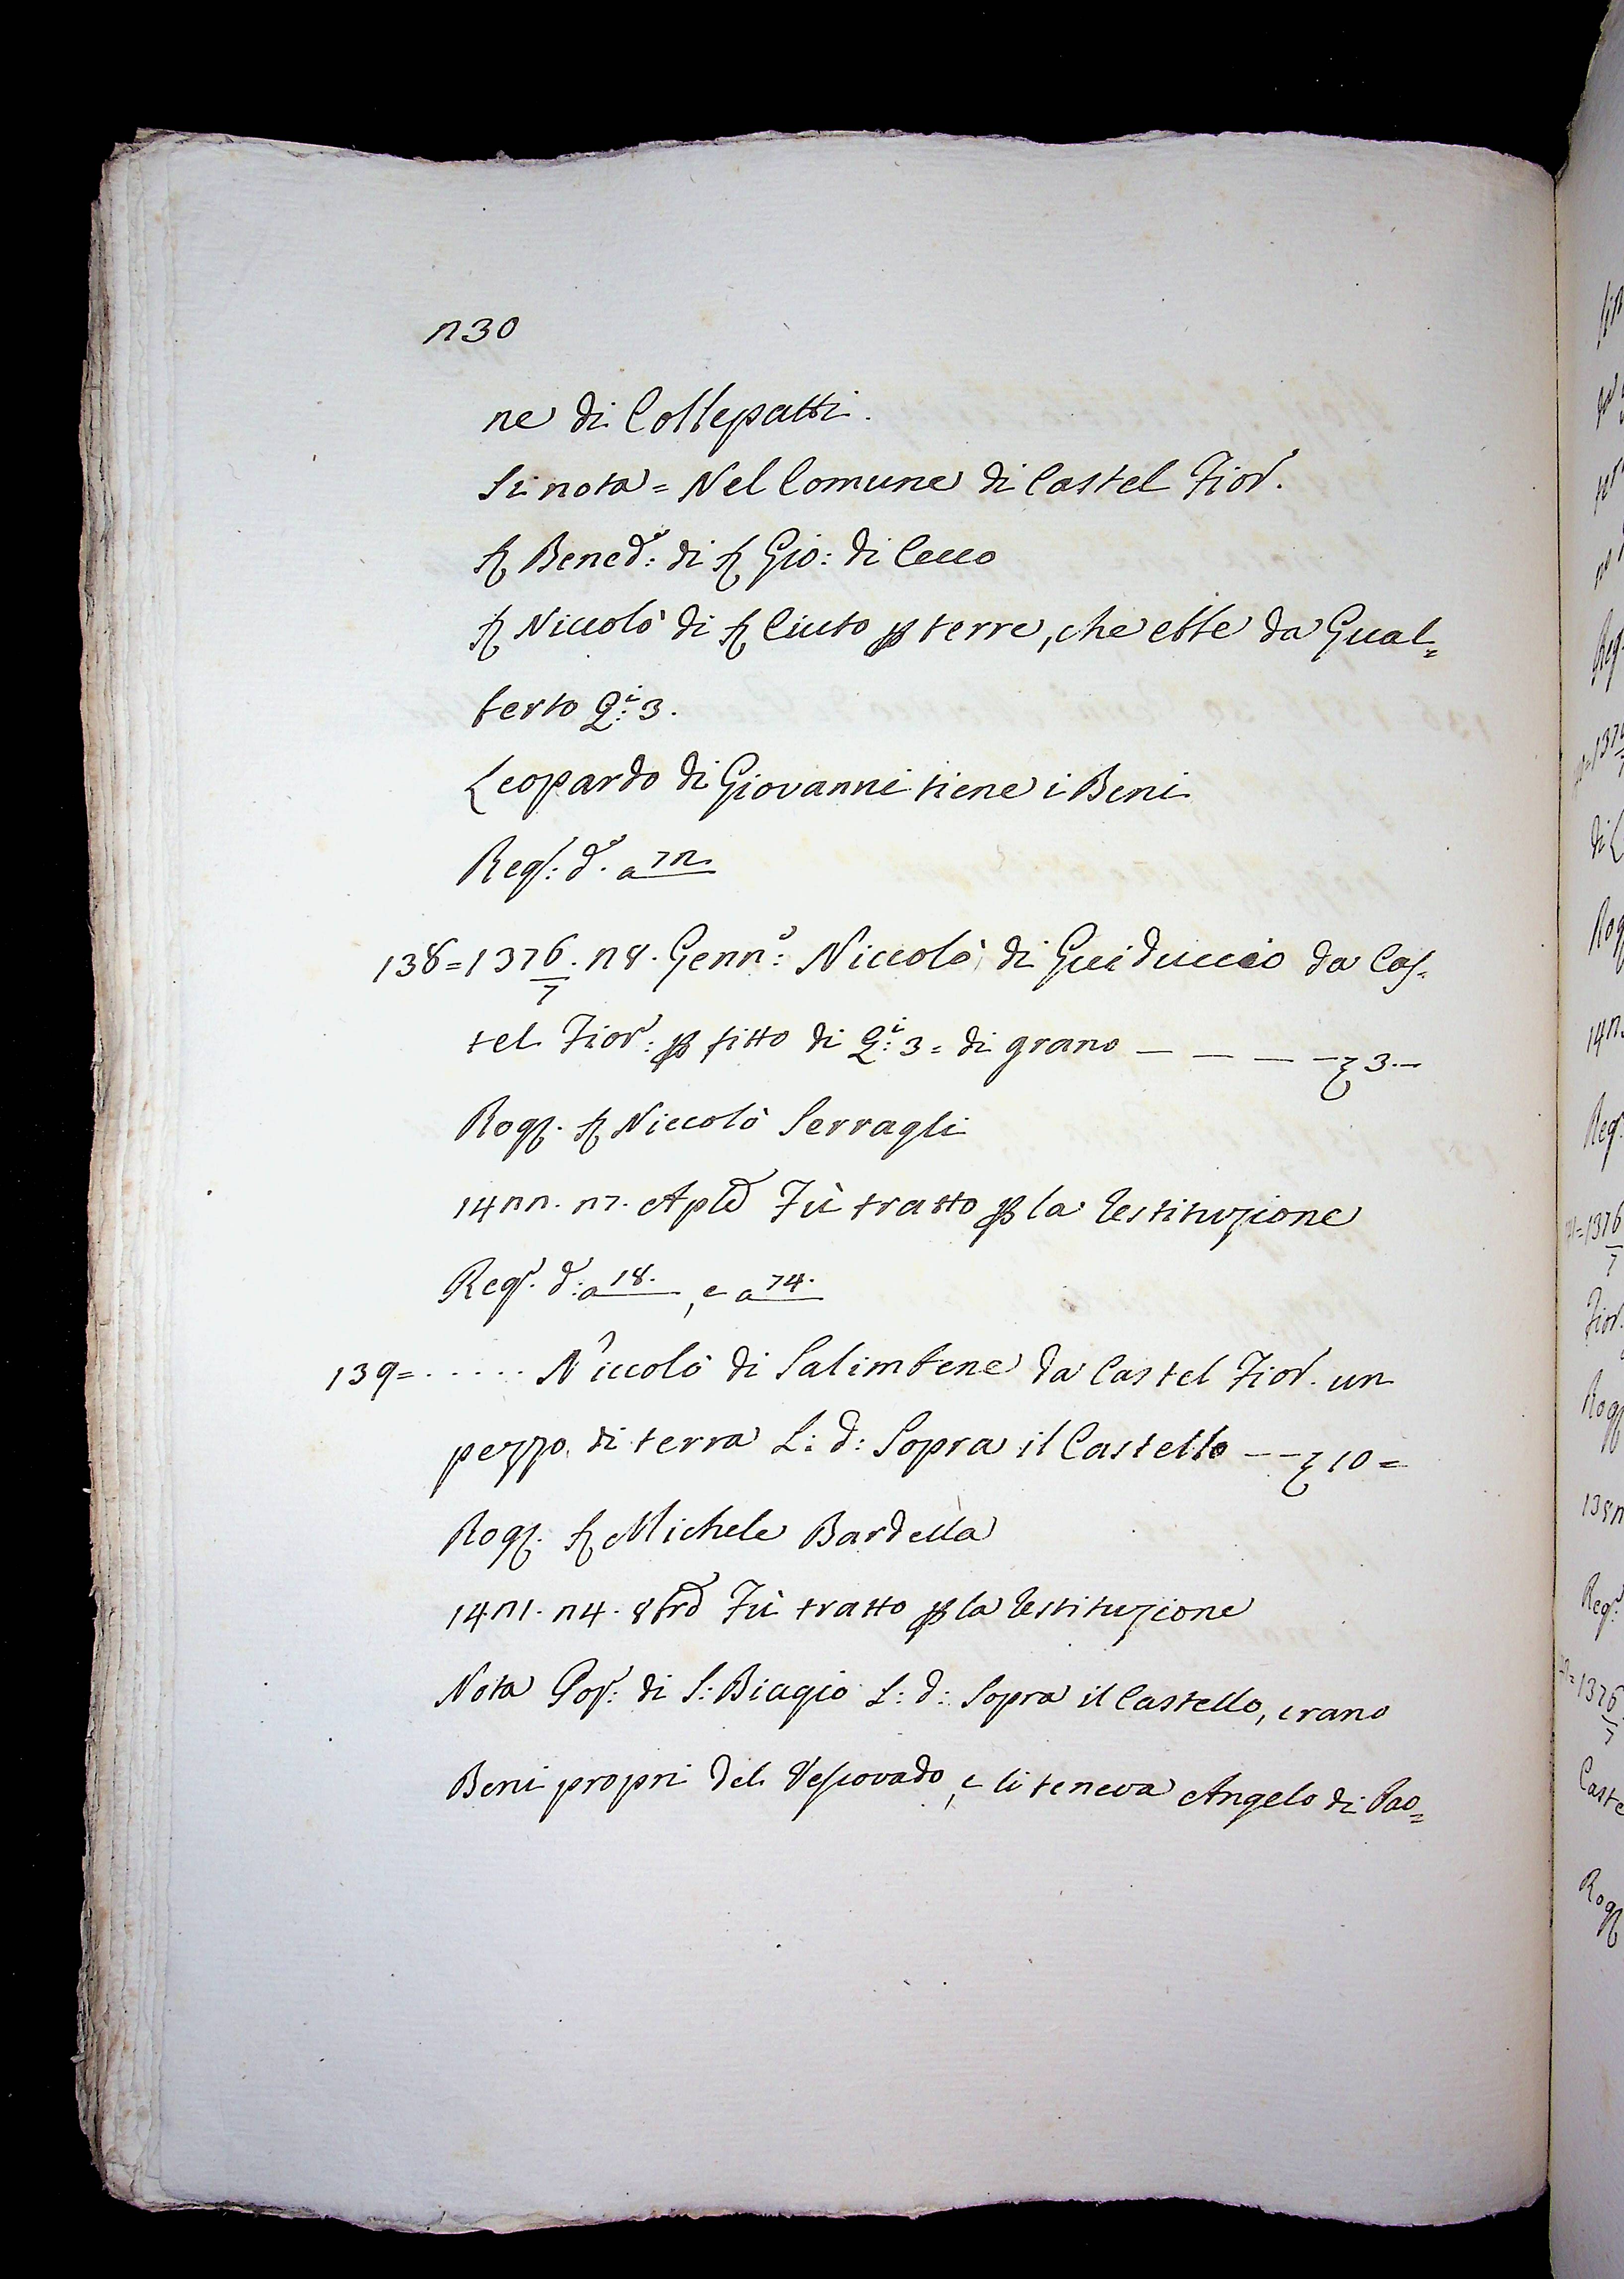 230
ne di Collepatti.
Si nota = Nel Comune di Castel Fior.
Sr Bened.o: di Sr Gio: di Cecco
Sr Niccolò di Sr Ciuto p terre, che ebbe da Gual=
berto Q.i: 3.
Leopardo di Giovanni tiene i Beni
Regs: d.o a 72.
138 = 1376/7. 28. Genn.o: Niccolò di Guiduccio da Cas=
tel Fior: p fitto di Q.i: 3 = di grano — — — — 3. —
Rog. Sr Niccolò Serragli
1422. 27. Aple Fù tratto p la restituzione
Regs. d: a 18. , e a 74.
139 = . . . . . Niccolò di Salimbene da Castel Fior. un
pezzo di terra L: d: Sopra il Castello — — 10 =
Rog. Sr Michele Bardella
1421. 24. 8bre Fù tratto p la restituzione
Nota Pos: di S: Biagio L: d: Sopra il Castello, erano
Beni propri del Vescovado, e li teneva Angelo di Pao=